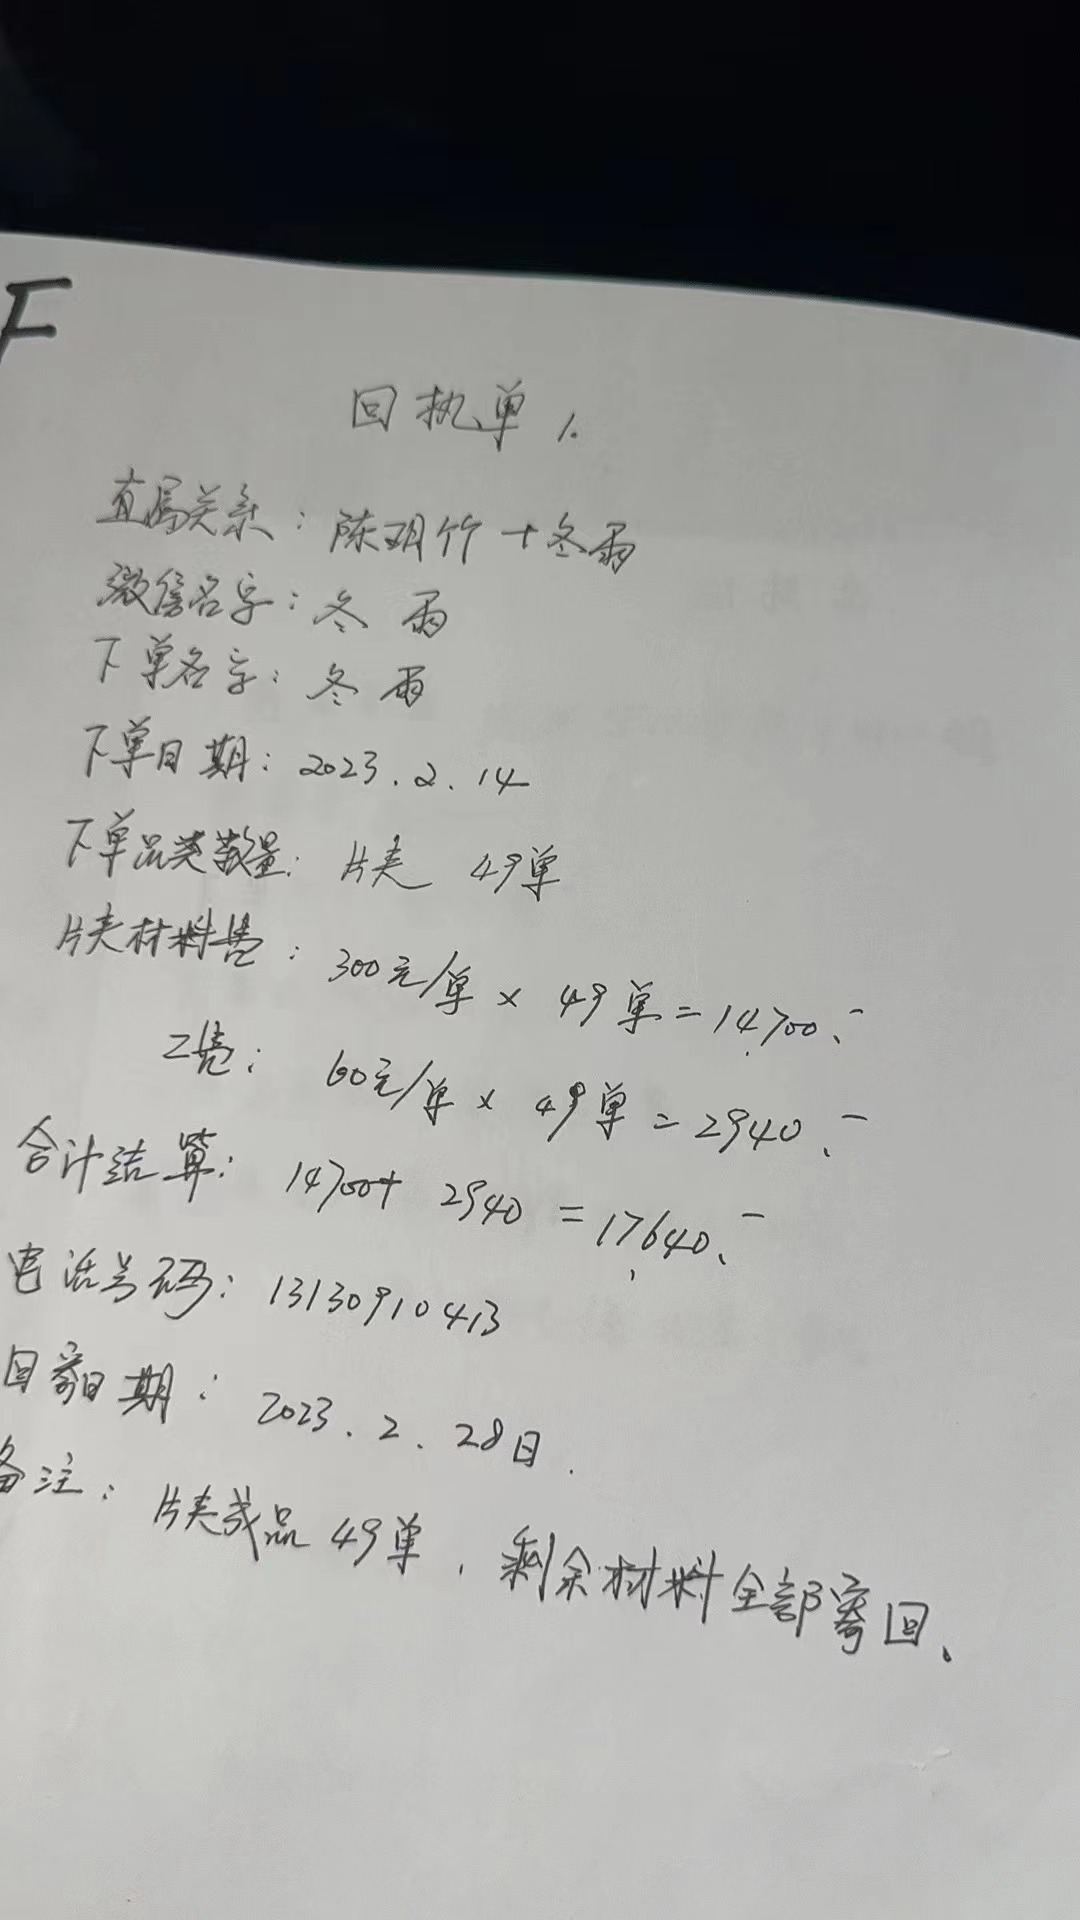 F
回执单1.
直属关系：陈玥竹+冬雨
微信名字：冬雨
下单名字：冬雨
下单日期：2023.2.14
下单品类数量：片夹 49单
片夹材料费：300元/单×49单=14700.-
工费：60元/单×49单=2940.-
合计结算：14700+2940=17640.-
电话号码：13130910413
回寄日期：2023.2.28日.
备注：片夹成品49单，剩余材料全部寄回、